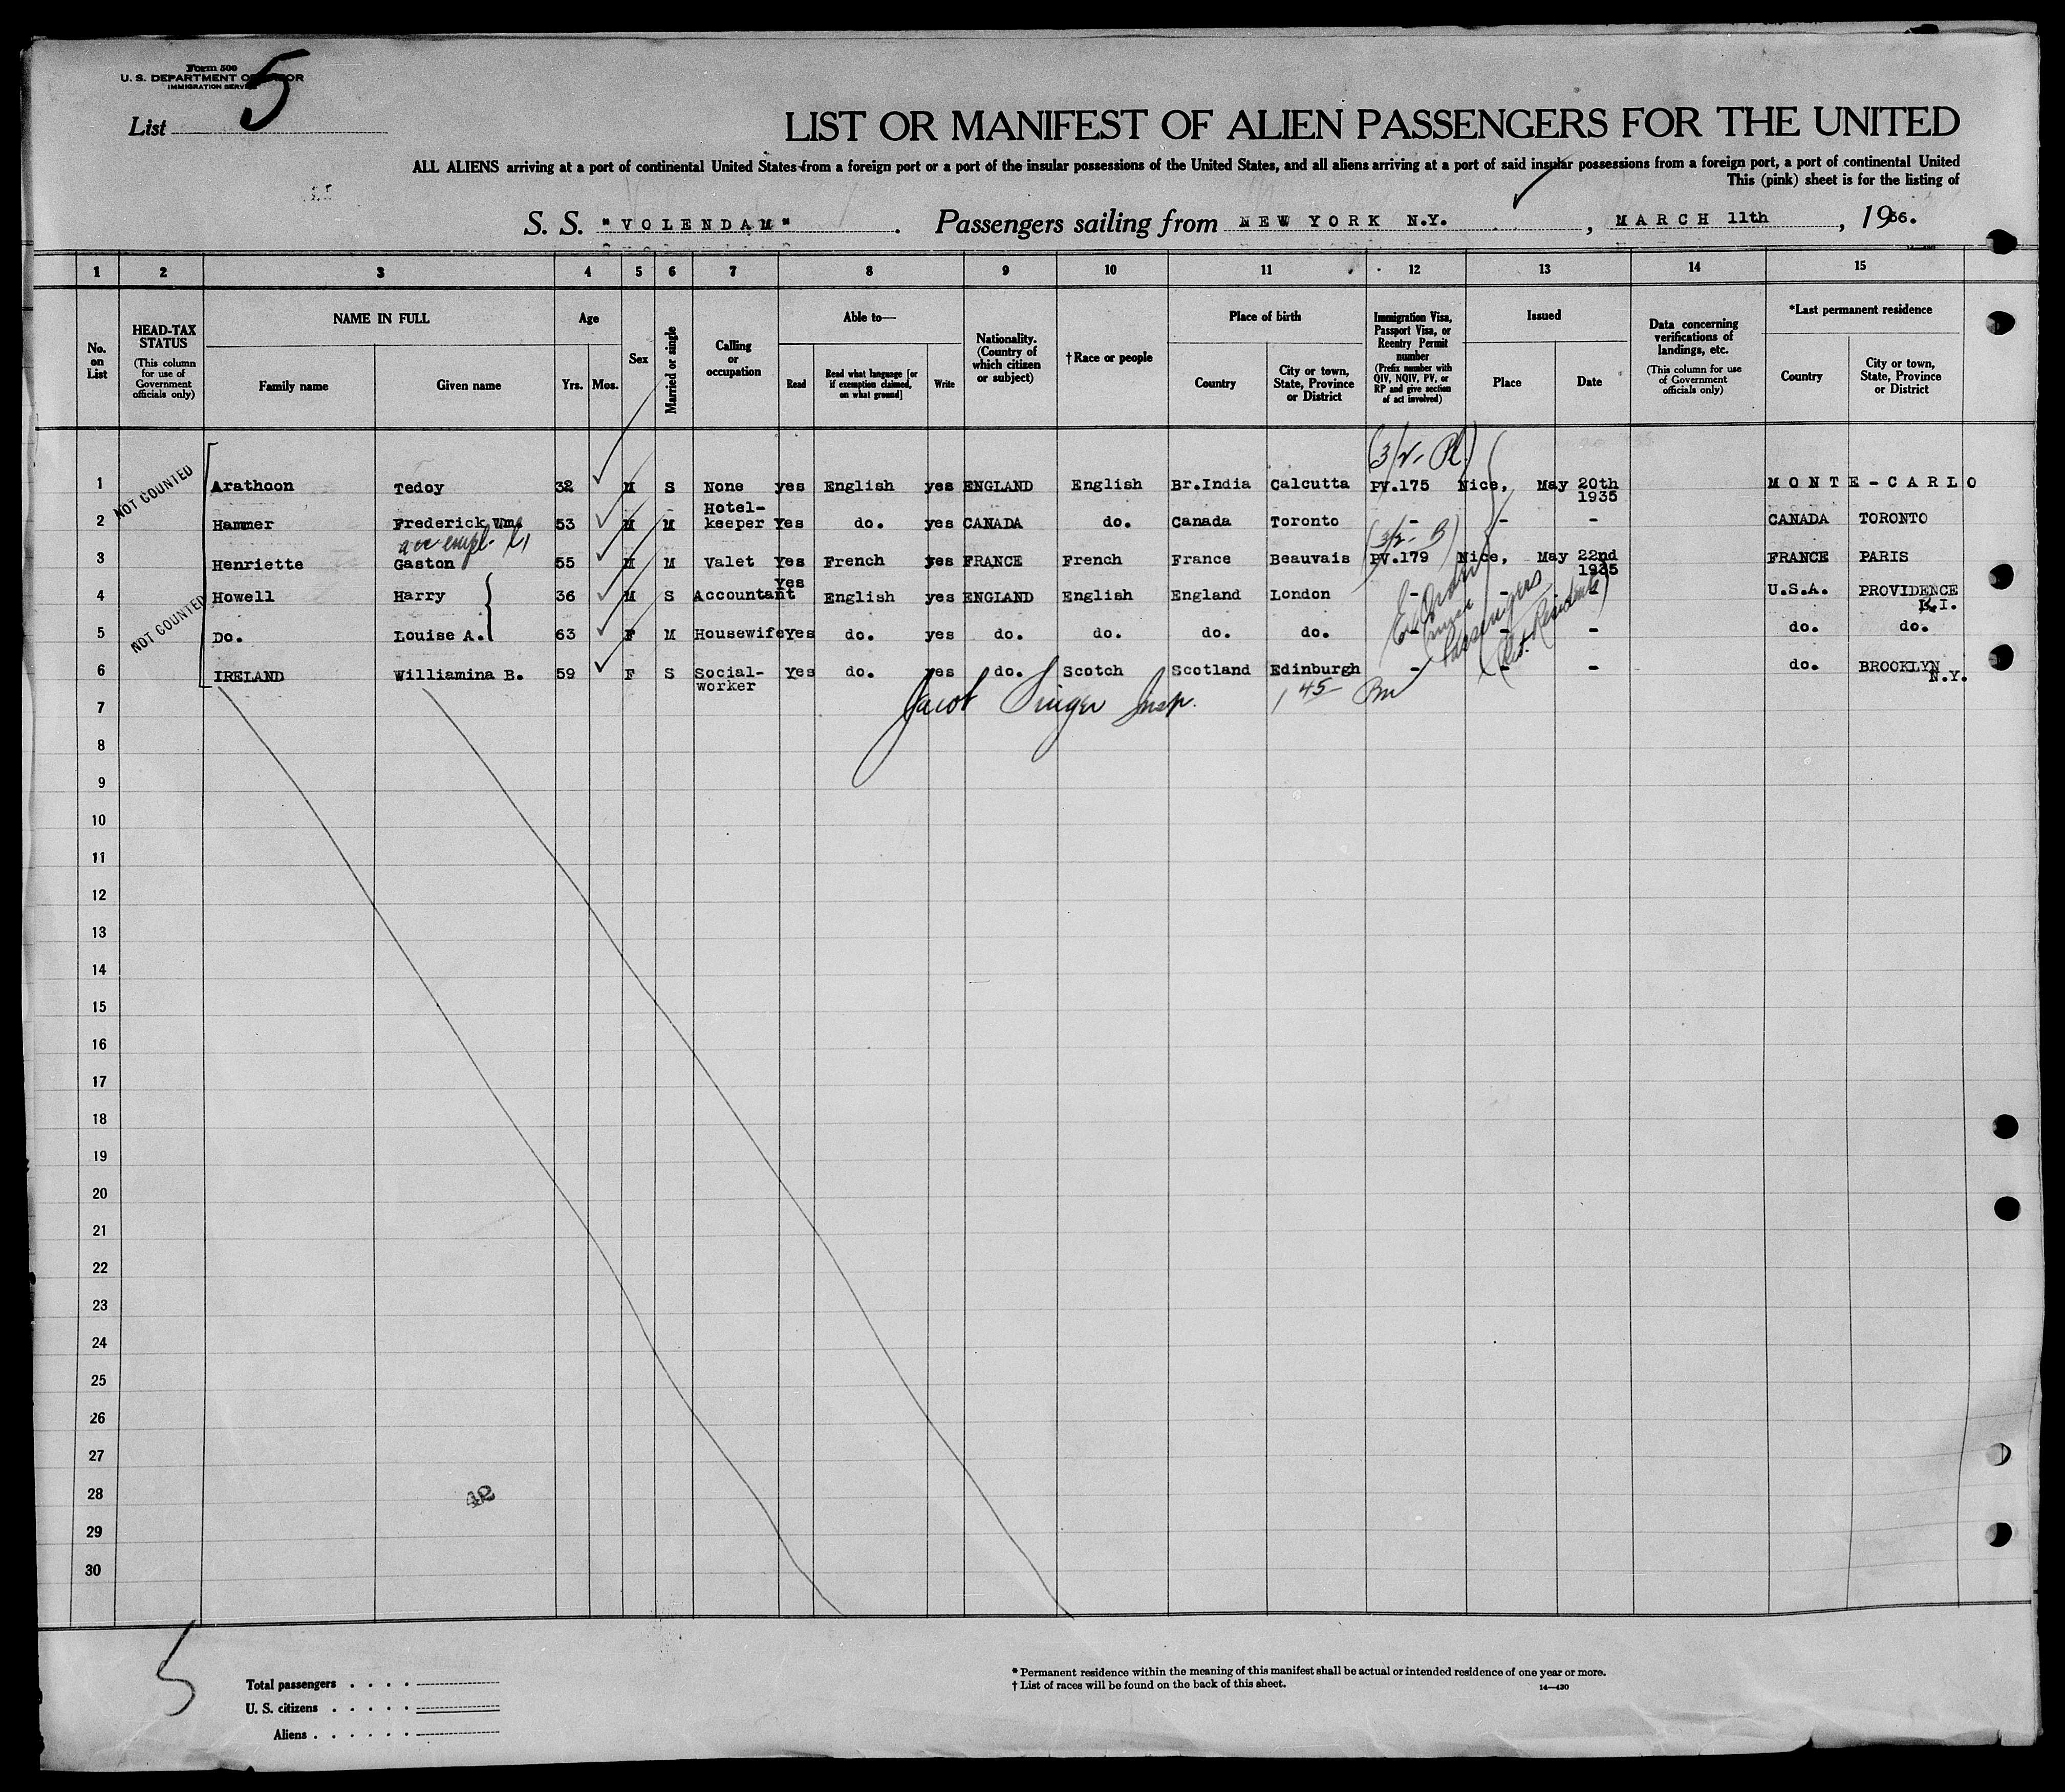 Form 500
U. S. DEPARTMENT OF LABOR
IMMIGRATION SERVICE
List 5
LIST OR MANIFEST OF ALIEN PASSENGERS FOR THE UNITED
ALL ALIENS arriving at a port of continental United States from a foreign port or a port of the insular possessions of the United States, and all aliens arriving at a port of said insular possessions from a foreign port, a port of continental United
This (pink) sheet is for the listing of
S. S. "VOLENDAM" . Passengers sailing from NEW YORK N.Y. , MARCH 11th , 1936.
1 2 3 4 5 6 7 8 9 10 11 12 13 14 15
No. on List
HEAD-TAX STATUS (This column for use of Government officials only)
NAME IN FULL
Family name Given name
Age
Yrs. Mos.
Sex
Married or single
Calling or occupation
Able to—
Read Read what language [or if exemption claimed, on what ground] Write
Nationality. (Country of which citizen or subject)
†Race or people
Place of birth
Country City or town, State, Province or District
Immigration Visa, Passport Visa, or Reentry Permit number (Prefix number with QIV, NQIV, PV, or RP and give section of act involved)
Issued
Place Date
Data concerning verifications of landings, etc. (This column for use of Government officials only)
*Last permanent residence
Country City or town, State, Province or District
NOT COUNTED
(3/2- Pl.)
1 Arathoon Tedoy 32 M S None yes English yes ENGLAND English Br.India Calcutta PV.175 Nice, May 20th 1935 MONTE-CARLO
2 Hammer Frederick Wm. 53 M M Hotel-keeper Yes do. yes CANADA do. Canada Toronto - - - CANADA TORONTO
(3/2- B)
3 Henriette Gaston 55 M M Valet Yes French yes FRANCE French France Beauvais PV.179 Nice, May 22nd 1935 FRANCE PARIS
NOT COUNTED
4 Howell Harry 36 M S Accountant Yes English yes ENGLAND English England London - - - U.S.A. PROVIDENCE R.I.
5 Do. Louise A. 63 F M Housewife Yes do. yes do. do. do. do. - - - do. do.
Passengers
6 IRELAND Williamina B. 59 F S Social-worker Yes do. yes do. Scotch Scotland Edinburgh - - - do. BROOKLYN N.Y.
Jacob Singer Insp. 1 45 Pm
7
8
9
10
11
12
13
14
15
16
17
18
19
20
21
22
23
24
25
26
27
28
29
30
42
5
Total passengers . . . .
U. S. citizens . . . . .
Aliens . . . . . .
* Permanent residence within the meaning of this manifest shall be actual or intended residence of one year or more.
† List of races will be found on the back of this sheet.
14—430